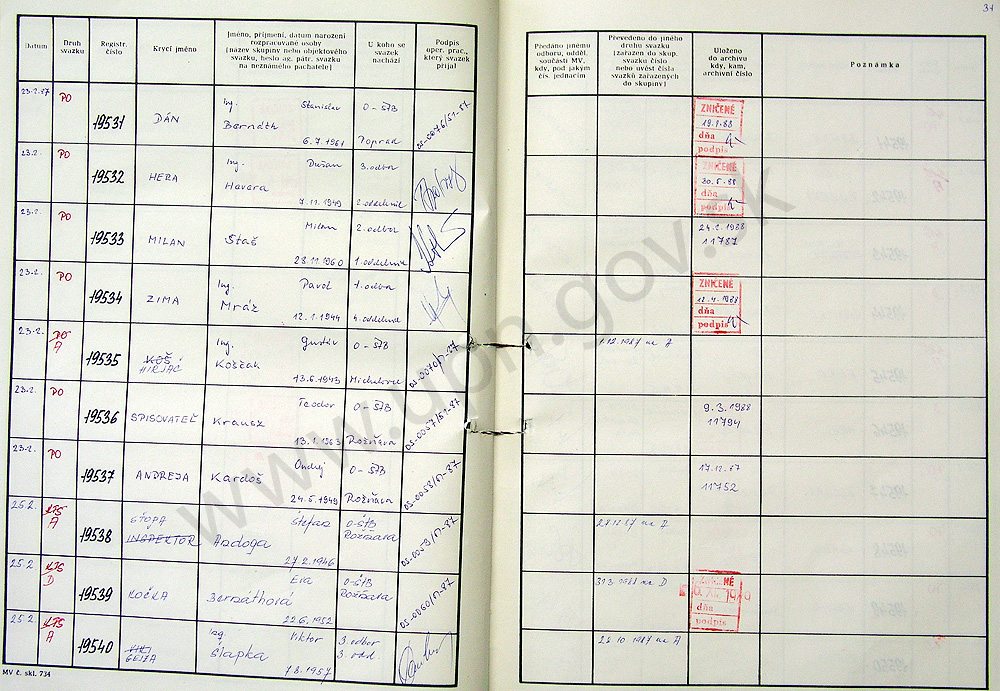 31
Datum
Druh svazku
Registr. číslo
Krycí jméno
Jméno, příjmení, datum narození
rozpracované osoby
[název skupiny nebo objektového
svazku, heslo ag. pátr. svazku
na neznámého pachatele]
U koho se
svazek
nachází
Podpis
oper. prac.,
který svazek
přijal
Předáno jinému
odboru, odděl.
součásti MV,
kdy, pod jakým
čís. jednacím
Převedeno do jiného
druhu svazku
[zařazen do skup.
svazku číslo
nebo uvést čísla
svazků zařazených
do skupiny]
Uloženo
do archivu
kdy, kam,
archivní číslo
Poznámka
23.2.87 PO 19531 DÁN Ing. Stanislav O-ŠTB
Bernáth
6.7.1961 Poprad
ZNIČENÉ
19.1.88
dňa
podpis
23.2. PO 19532 HERA Ing. Dušan 3. odbor
Havera
7.11.1949 2. oddelenie
ZNIČENÉ
30.5.88
dňa
podpis
23.2. PO 19533 MILAN Milan 2. odbor
Stač
28.11.1960 1. oddelenie
24.2.1988
11787
23.2. PO 19534 ZIMA Ing. Pavol 1. odbor
Mráz
12.1.1944 4. oddelenie
ZNIČENÉ
12.4.1988
dňa
podpis
23.2. PO A 19535 KOŠ Ing. Gustáv O-ŠTB
Koščák
13.6.1943 Michalovce
1.12.1987 na A
23.2. PO 19536 SPISOVATEĽ Teodor O-ŠTB
Krausz
13.1.1963 Rožňava
OS-0057/ST-87
9.3.1988
11794
23.2. PO 19537 ANDREJA Ondrej O-ŠTB
Kardoš
24.5.1949 Rožňava
OS-0058/ST-87
17.12.87
11752
25.2. KTS A 19538 STOPA Štefan O-ŠTB
INŠPEKTOR Andoga Rožňava
27.2.1946
OS-0059/ST-87
25.2. KTS D 19539 ROČKA Eva O-ŠTB
Bernáthová Rožňava
22.6.1952
OS-0060/ST-87
31.3.1988 na D
ZNIČENÉ
dňa
podpis
25.2. KTS A 19540 Ing. Viktor 3. odbor
GEJZA Šlapka 3. odd.
7.8.1957
22.10.1987 na A
MV č. skl. 734
www.upn.gov.sk